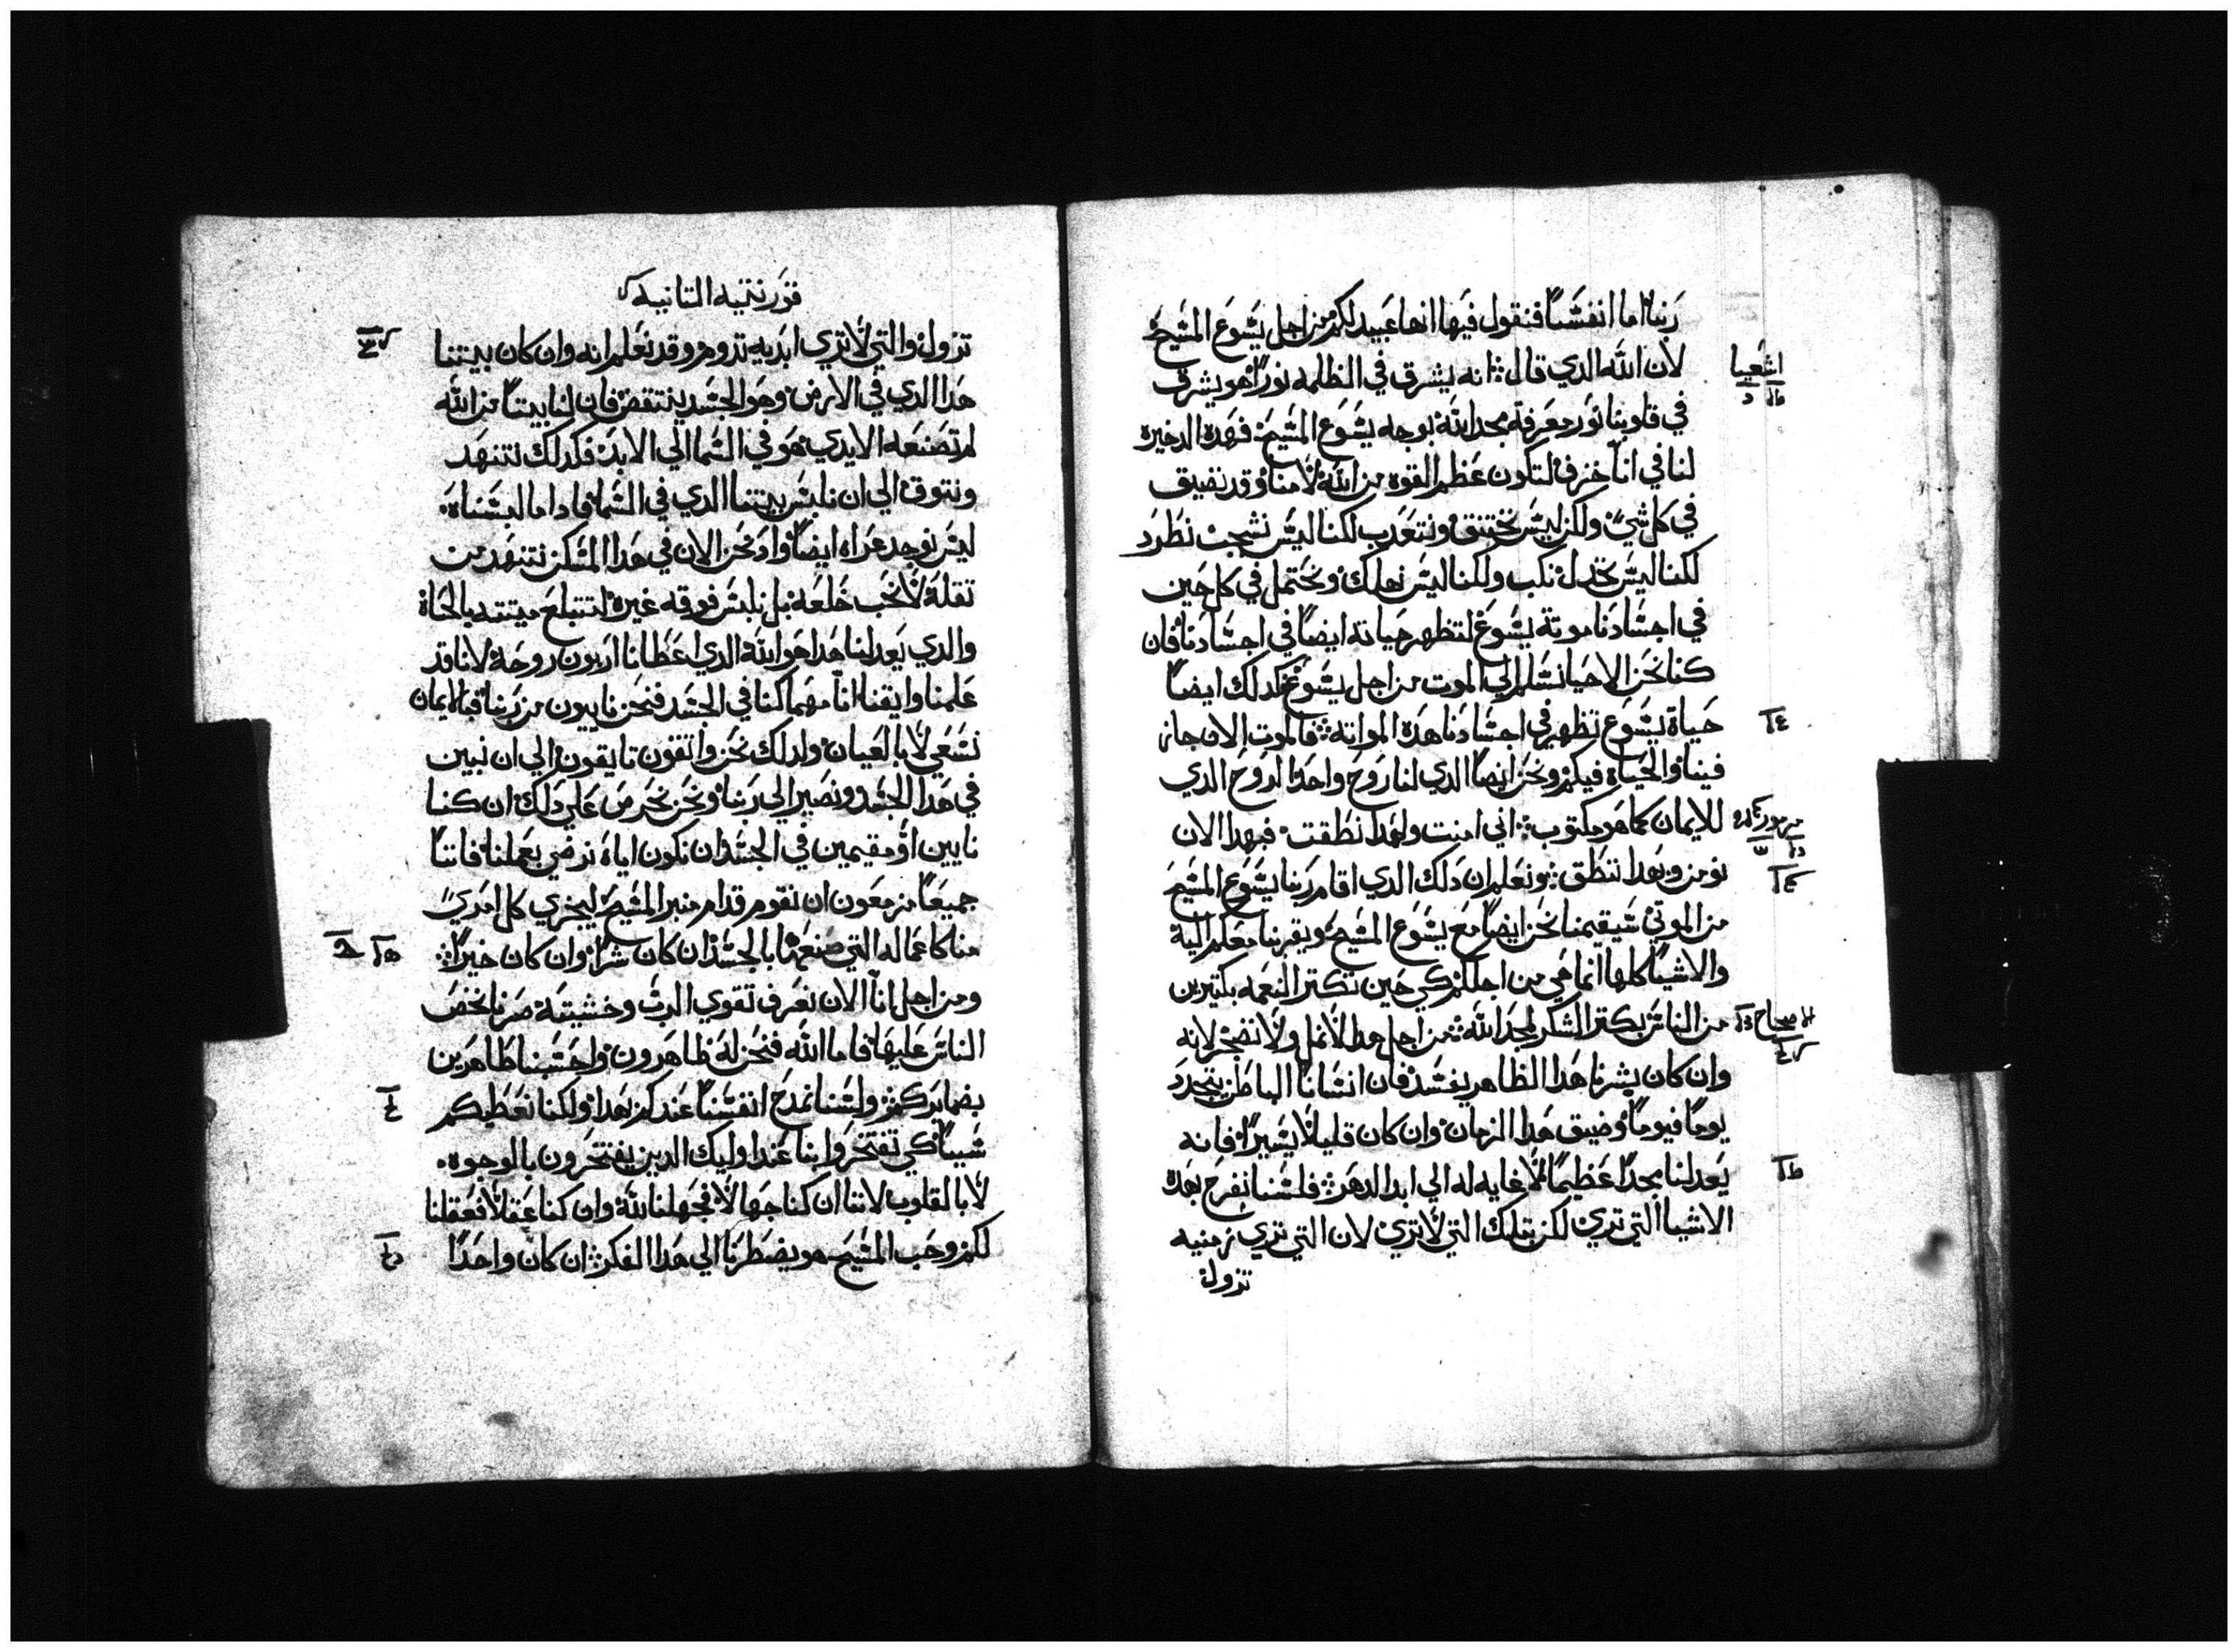 ربنا اما انفسنا فنقول فيها انها عبيد لكم من اجل يسوع المسيح
لان الله الدي قال انه يشرق في الظلمه نورا هو يشرق
اشعيا
في قلوبنا نور معرفة مجد الله بوجه يسوع المسيح فهده الدخيره
لنا في انا خزف لتكون عظم القوه من الله لا منا وقد نضيق
في كل شي ولكن ليس نختنق ونتعدب لكنا ليس نشجب نطرد
لكنا ليس نخدل نكب ولكنا ليس نهلك ونحتمل في كل حين
في اجسادنا موتة يسوع لتظهر حياته ايضا في اجسادنا فان
كنا نحن الاحيا نسلم الي الموت من اجل يسوع فكدلك ايضا
حياة يسوع تظهر في اجسادنا هده المواته فالموت الان جاز
فينا والحياة فيكم ونحن ايضا الدي لنا روح واحد الروح الدي
للايمان كما هو مكتوب اني امنت ولهدا نطقت فبهدا الان
مزمور
نومن وبهدا ننطق ونعلم ان دلك الدي اقام ربنا يسوع المسيح
من الموتي سيقيمنا نحن ايضا مع يسوع المسيح ويقربنا معكم اليه
والاشيا كلها انما هي من اجلكم كي حين تكتر النعمه بكتيرين
من الناس يكتر الشكر لمجد الله من اجل هدا لا نمل ولا نضجر لانه
اصحاح
وان كان بشرنا هدا الظاهر يفسد فان انساننا الباطن يتجدد
يوما فيوما وضيق هدا الزمان وان كان قليلا يسيرا فانه
يعد لنا مجدا عظيما لا غايه له الي ابد الدهر فلسنا نفرح بهده
الاشيا التي تري لكن بتلك التي لا تري لان التي تري زمنيه
تزول
قورنتيه التانيه
تزول والتي لا تري ابديه تدوم وقد نعلم انه وان كان بيتنا
هدا الدي في الارض وهو الجسد ينتقض فان لنا بيتا من الله
لم تصنعه الايدي هو في السما الي الابد فكدلك نتنهد
ونتوق الي ان نلبس بيتنا الدي في السما فادا ما لبسناه
ليس نوجد عراه ايضا واد نحن الان في هدا المسكن نتنهد من
تقله لا نحب خلعه بل نلبس فوقه غيره لتبتلع ميتته بالحياه
والدي يعد لنا هدا هو الله الدي اعطانا اربون روحه لانا قد
علمنا وايقنا انا مهما كنا في الجسد فنحن نايبون من ربنا فبالايمان
نسعي لا بالعيان ولدلك نحن واتقون تايقون الي ان نبين
في هدا الجسد ونصير الي ربنا ونحن نحرص علي دلك ان كنا
نايين او مقيمين في الجسد ان نكون اياه نرضي بعملنا فاننا
جميعا مزمعون ان نقوم قدام منبر المسيح ليجزي كل امري
منا كاعماله التي صنعها بالجسد ان كان شرا وان كان خيرا
ومن اجل انا الان نعرف تقوي الرب وخشيته صرنا نحض
الناس عليها فاما الله فنحن له ظاهرون واحتسبنا ظاهرين
بضمايركم ولسنا نمدح انفسنا عندكم بهدا ولكنا نعطيكم
سببا كي تفتخروا بنا عند اوليك الدين يفتخرون بالوجوه
لا بالقلوب لاننا ان كنا جهالا فجهلنا لله وان كنا عقلا فعقلنا
لكم وحب المسيح هو يضطرنا الي هدا الفكر ان كان واحدا